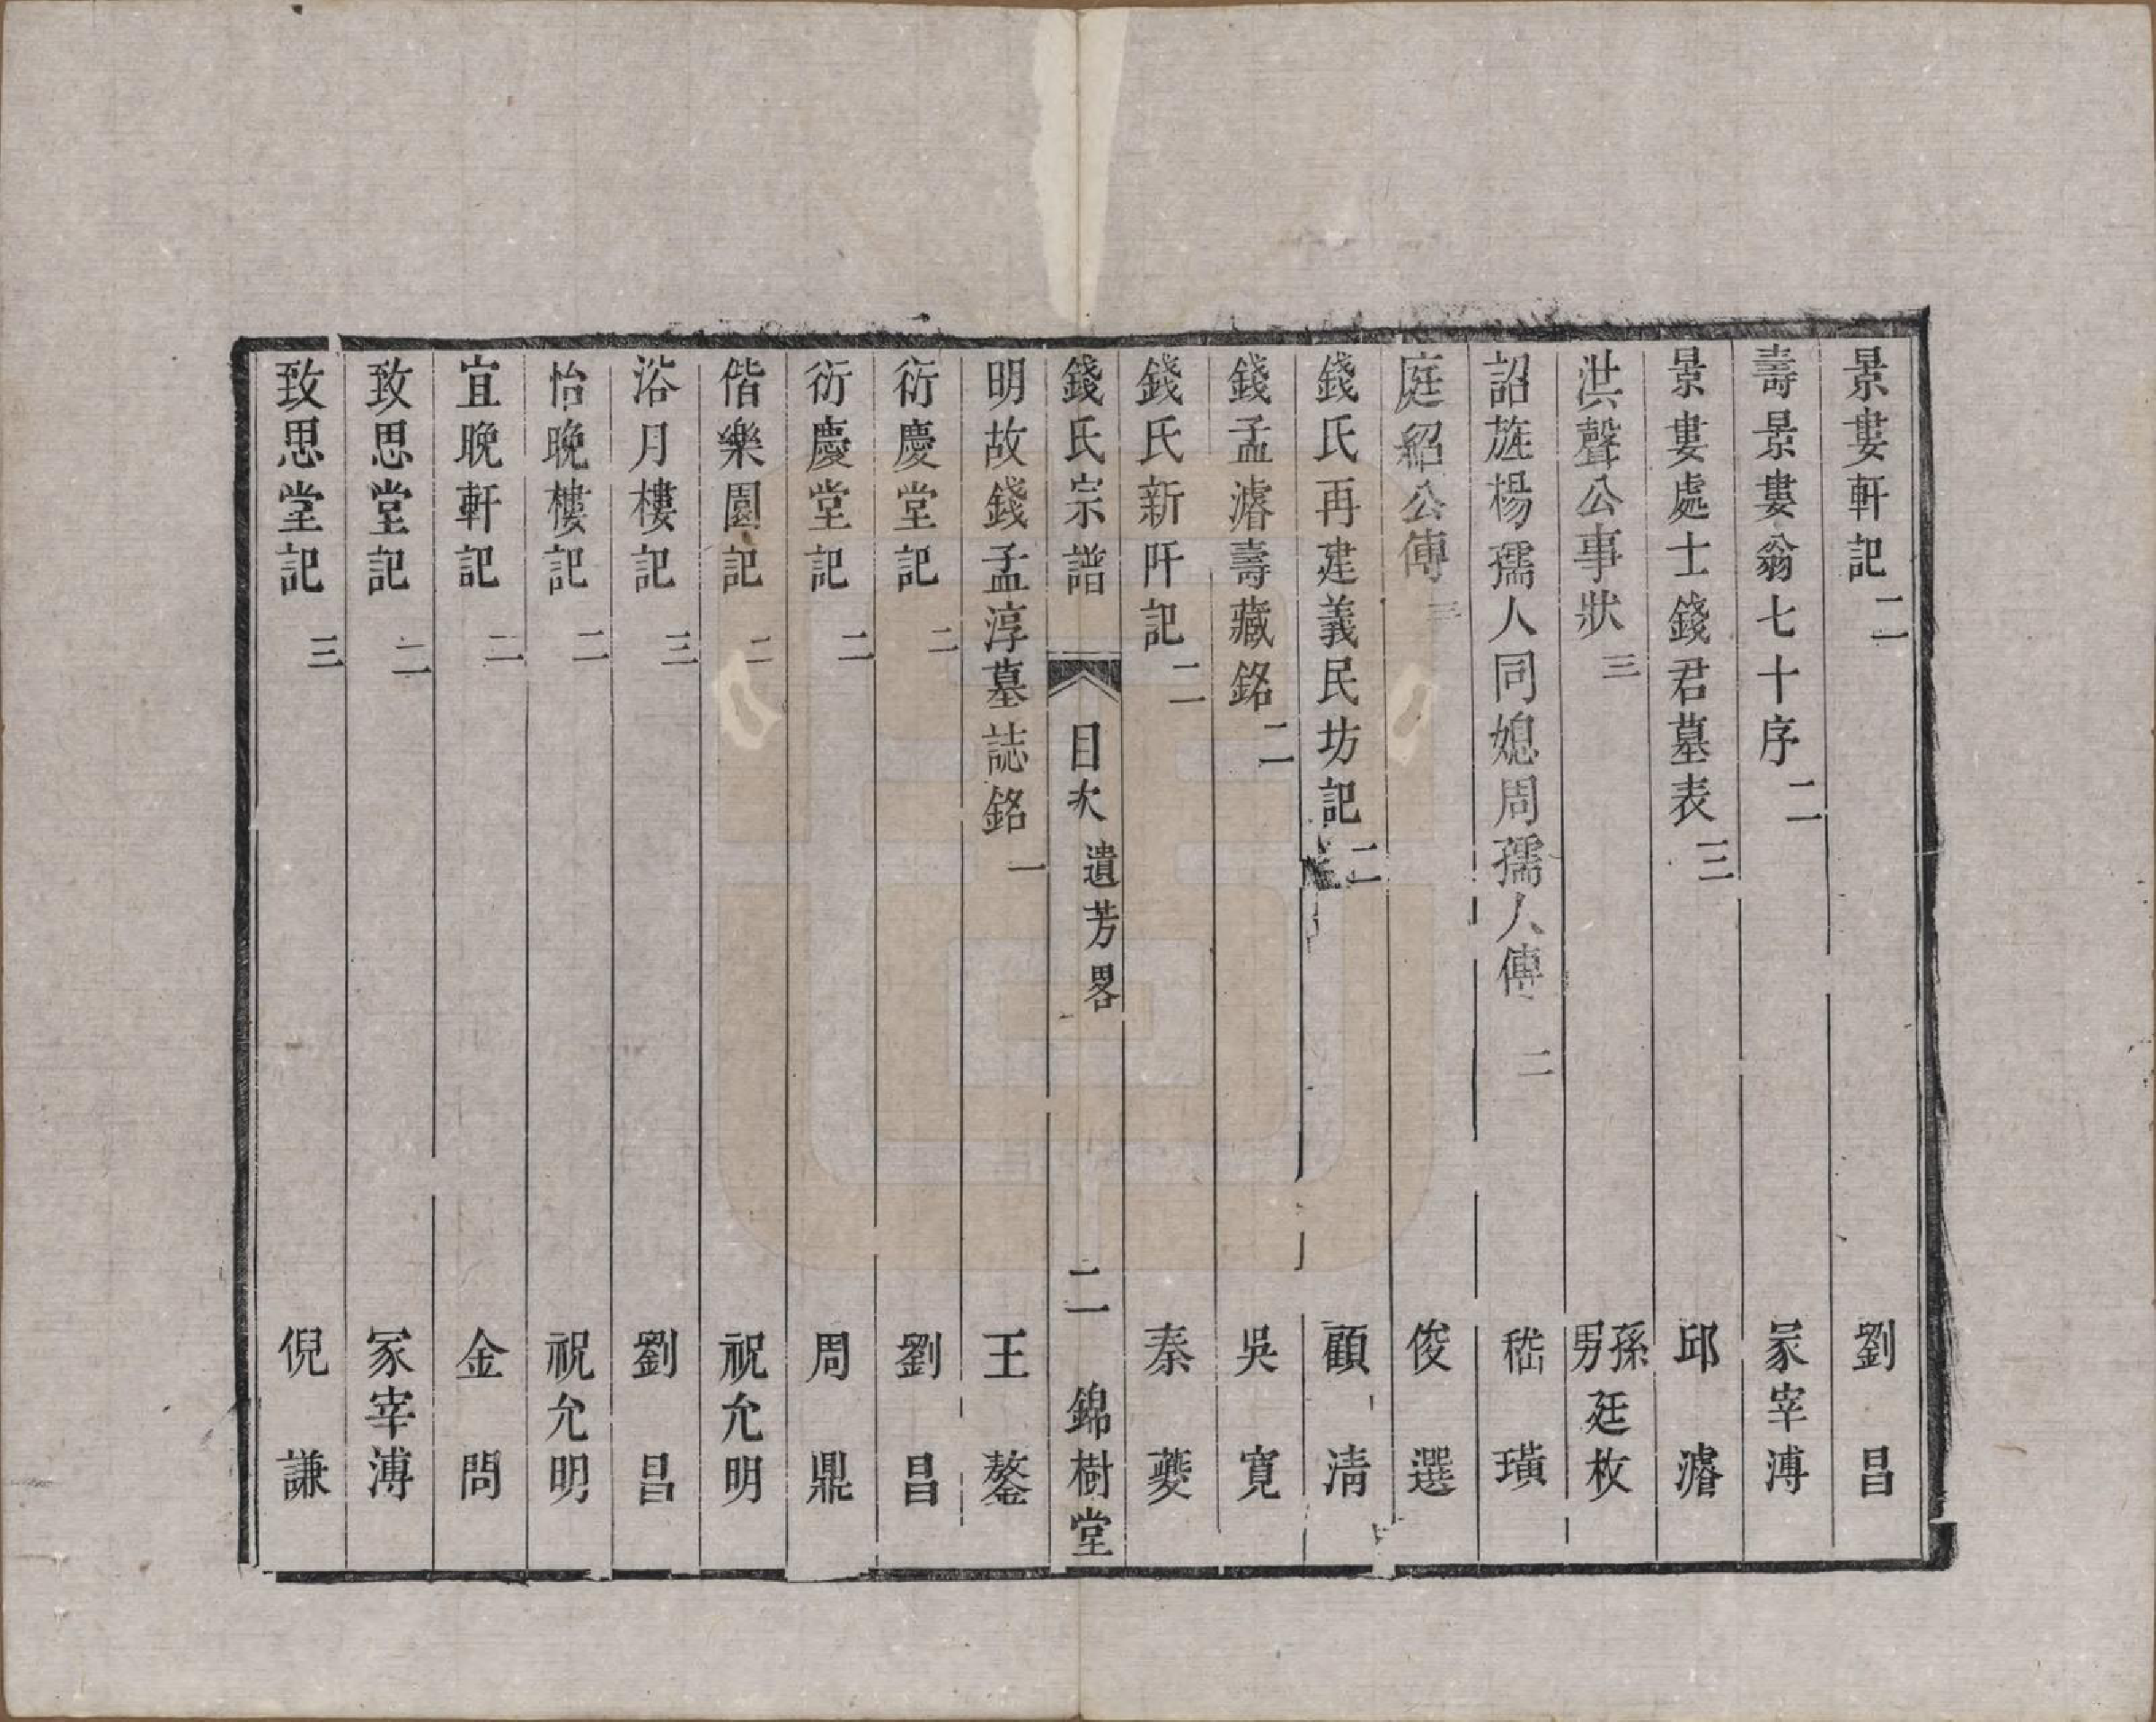 景婁軒記 二 劉昌
壽景婁翁七十序 二 冡宰溥
景婁處士錢君墓表 三 邱濬
洪聲公事狀 三 孫男廷枚
詔旌楊孺人同媳周孺人傳 二 嵇璜
庭紹公傳 三 俊選
錢氏再建義民坊記 二 顧清
錢孟濬壽藏銘 二 吳寬
錢氏新阡記 二 秦夔
錢氏宗譜 目次 遺芳畧 二 錦樹堂
明故錢孟淳墓誌銘 一 王鏊
衍慶堂記 二 劉昌
衍慶堂記 二 周鼎
偕樂園記 二 祝允明
浴月樓記 三 劉昌
怡晚樓記 二 祝允明
宜晚軒記 二 金問
致思堂記 二 冢宰溥
致思堂記 三 倪謙